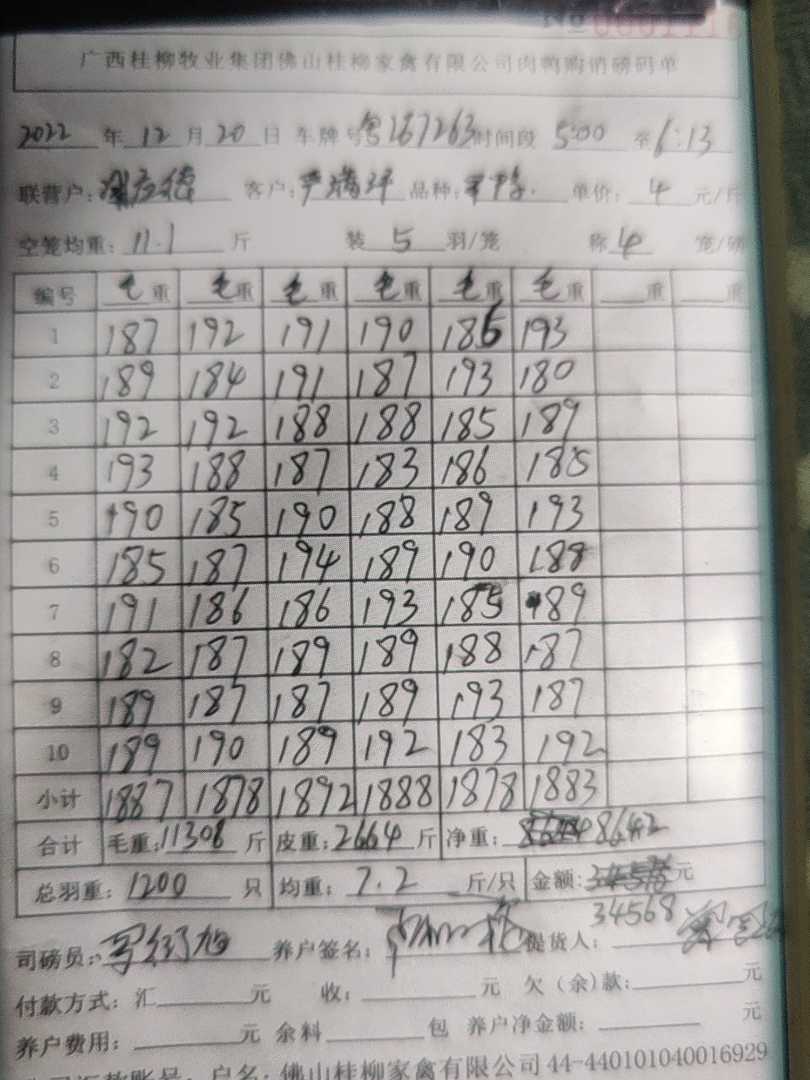 广西桂柳牧业集团佛山桂柳家禽有限公司肉鸭购销磅码单
2022 年 12 月 20 日 车牌号 粤 267263 时间段 5:00 至 6:13
联营户: 客户: 严 品种: 单价: 4 元/斤
空笼均重: 11.1 斤 装 5 羽/笼 称 4 笼/磅
编号 毛重 毛重 毛重 毛重 毛重 毛重 重 重
1 187 192 191 190 186 193
2 189 184 191 187 193 180
3 192 192 188 188 185 189
4 193 188 187 183 186 185
5 190 185 190 188 189 193
6 185 187 194 189 190 188
7 191 186 186 193 185 189
8 182 187 189 189 188 187
9 189 187 187 189 193 187
10 189 190 189 192 183 192
小计 1887 1878 1892 1888 1878 1883
合计 毛重: 11306 斤 皮重: 2664 斤 净重: 8642
总羽重: 1200 只 均重: 7.2 斤/只 金额: 元
34568
司磅员: 养户签名: 提货人:
付款方式: 汇 元 收: 元 欠(余)款: 元
养户费用: 元 余料 包 养户净金额: 元
汇款账号: 户名: 佛山桂柳家禽有限公司 44-440101040016929